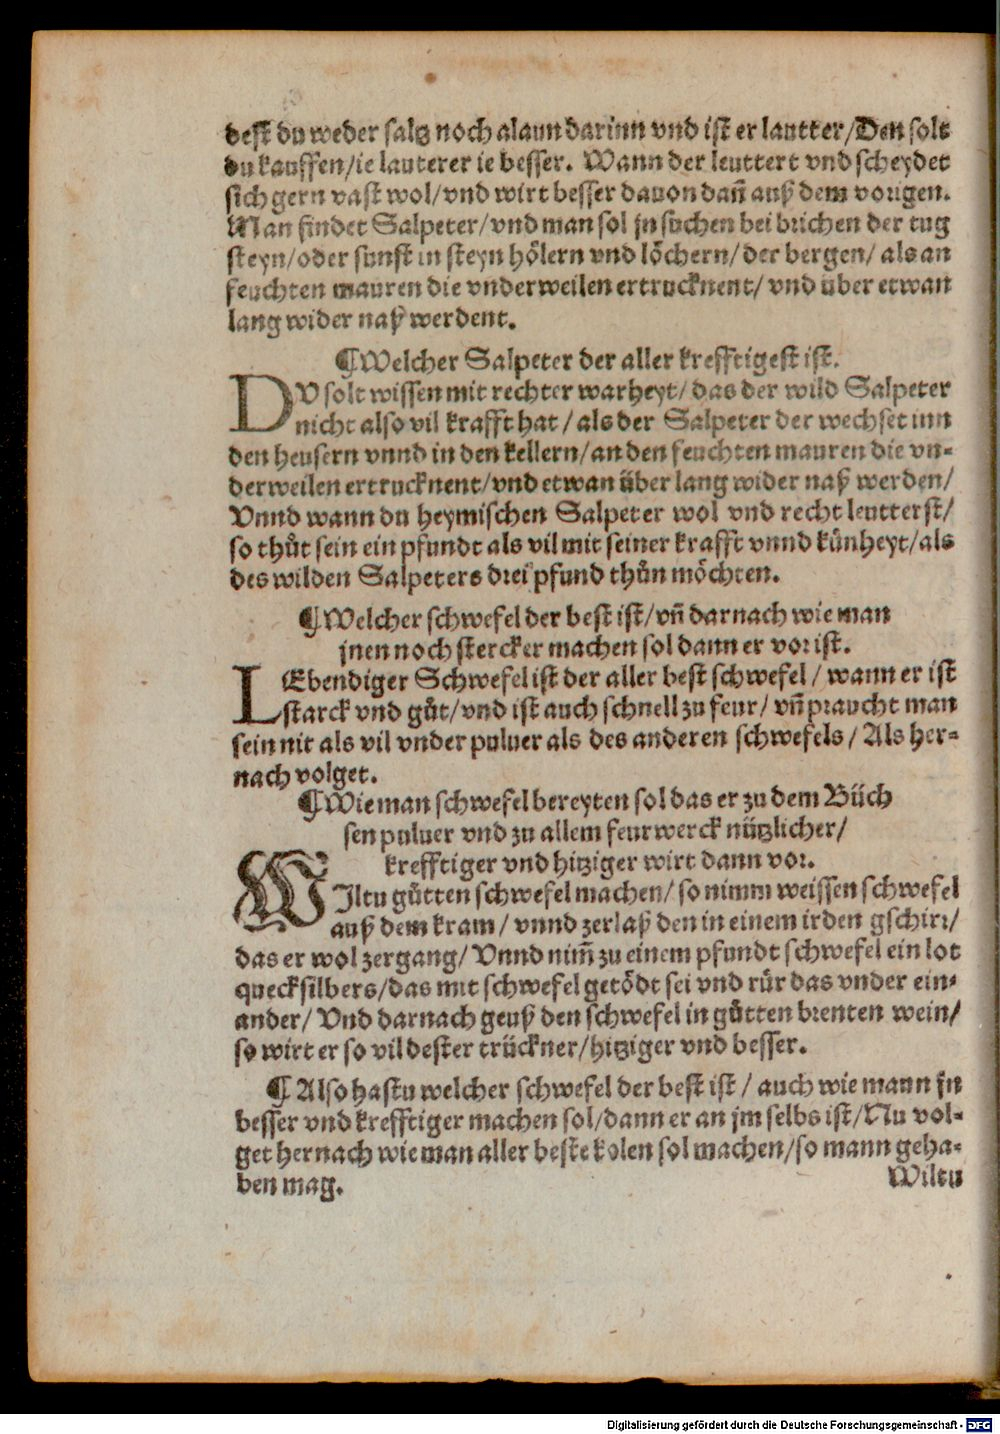 dest du weder saltz noch alaun darinn vnd ist er lautter/Den solt
du kauffen/ie lauterer ie besser. Wann der leuttert vnd scheydet
sich gern vast wol/vnd wirt besser dauon dañ auß dem vorigen.
Man findet Salpeter/vnd man sol jn suchen bei brichen der tug
steyn/oder sunst in steyn hölern vnd löchern/der bergen/ als an
feuchten mauren die vnderweilen ertrucknent/ vnd über etwan
lang wider naß werdent.
¶Welcher Salpeter der aller krefftigest ist.
DV solt wissen mit rechter warheyt/das der wild Salpeter
nicht also vil krafft hat / als der Salpeter der wechset inn
den heusern vnnd in den kellern/an den feuchten mauren die vn-
derweilen ertrucknent/vnd etwan über lang wider naß werden/
Vnnd wann du heymischen Salpeter wol vnd recht leutterst/
so thůt sein ein pfundt als vil mit seiner krafft vnnd künheyt/als
des wilden Salpeters drei pfund thůn möchten.
¶Welcher schwefel der best ist/vñ darnach wie man
jnen noch stercker machen sol dann er vor ist.
LEbendiger Schwefel ist der aller best schwefel / wann er ist
starck vnd gůt/vnd ist auch schnell zu feur/ vñ praucht man
sein nit als vil vnder puluer als des anderen schwefels / Als her-
nach volget.
¶Wie man schwefel bereyten sol das er zu dem Büch
sen puluer vnd zu allem feurwerck nützlicher/
krefftiger vnd hitziger wirt dann vor.
WIltu gůtten schwefel machen/ so nimm weissen schwefel
auß dem kram / vnnd zerlaß den in einem irden gschirr/
das er wol zergang/ Vnnd nim̃ zu einem pfundt schwefel ein lot
quecksilbers/das mit schwefel getödt sei vnd rür das vnder ein-
ander/ Vnd darnach geuß den schwefel in gůtten brenten wein/
so wirt er so vil dester trückner/hitziger vnd besser.
¶ Also hastu welcher schwefel der best ist / auch wie mann jn
besser vnd krefftiger machen sol/dann er an jm selbs ist/Nu vol-
get hernach wie man aller beste kolen sol machen/so mann geha-
ben mag.
Wiltu
Digitalisierung gefördert durch die Deutsche Forschungsgemeinschaft - DFG